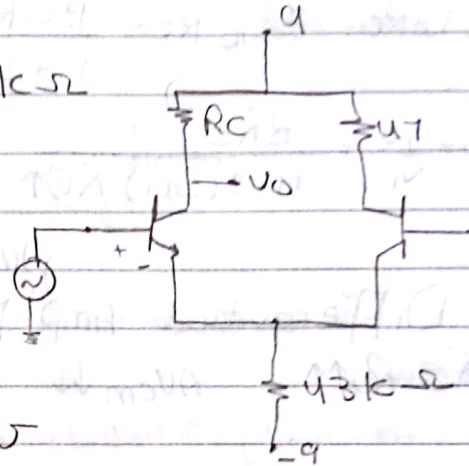 9
kΩ
RC
47
VO
+
-
~
43kΩ
-9